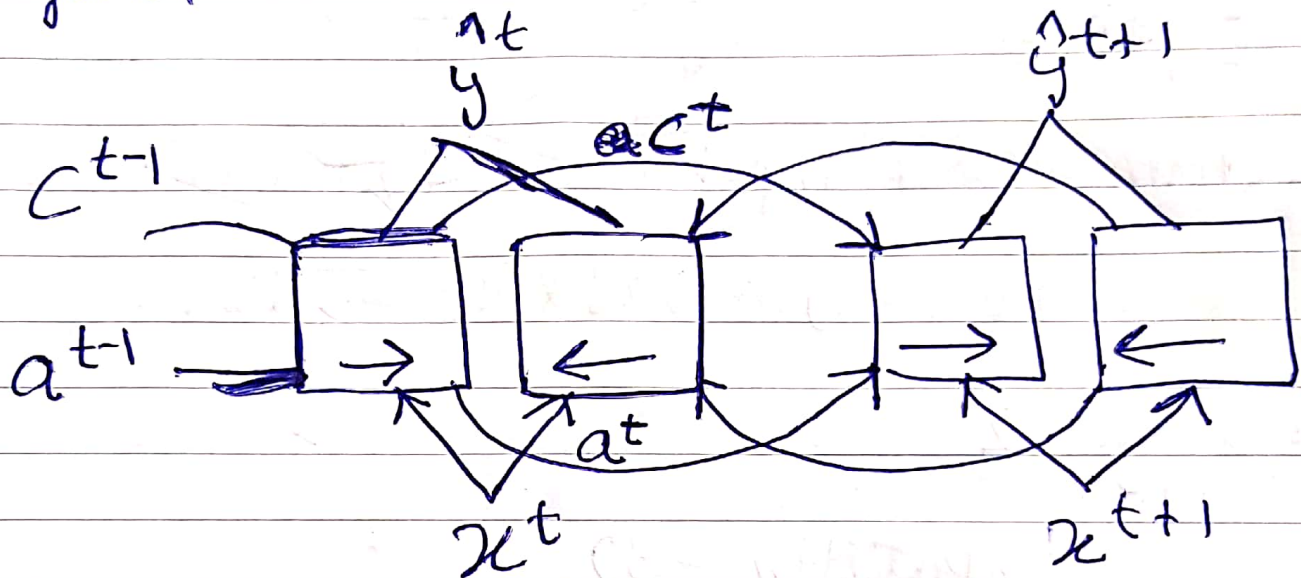 ŷ^t
ŷ^{t+1}
c^t
c^{t-1}
a^{t-1}
a^t
x^t
x^{t+1}